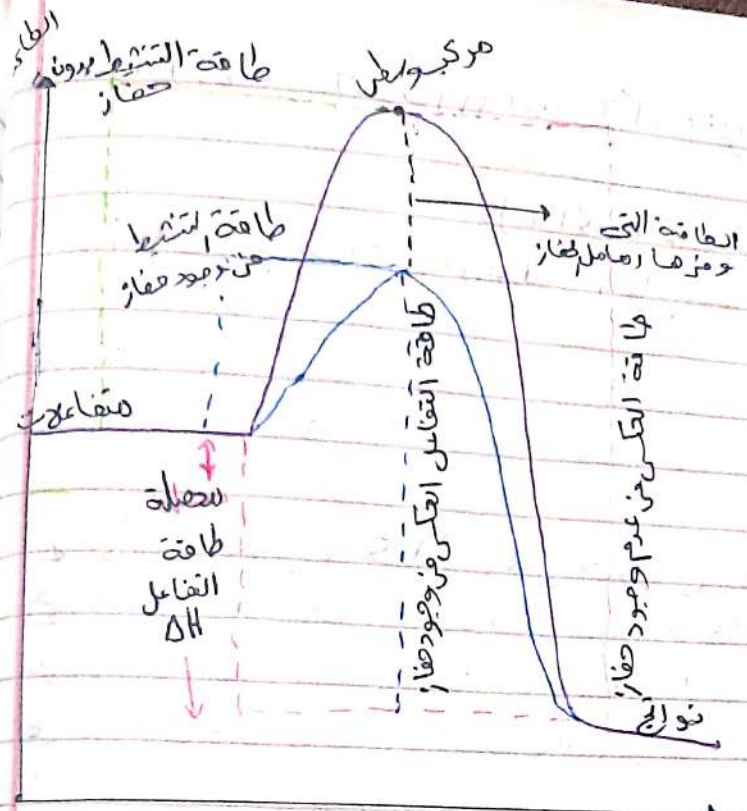 طاقة التنشيط بدون
حفاز
مركب وسطي
طاقة التنشيط
من وجود حفاز
الطاقة التي
وفرها العامل الحفاز
متفاعلات
محصلة
طاقة
التفاعل
ΔH
طاقة التفاعل العكسي من وجود حفاز
طاقة العكسي من عدم وجود حفاز
نواتج